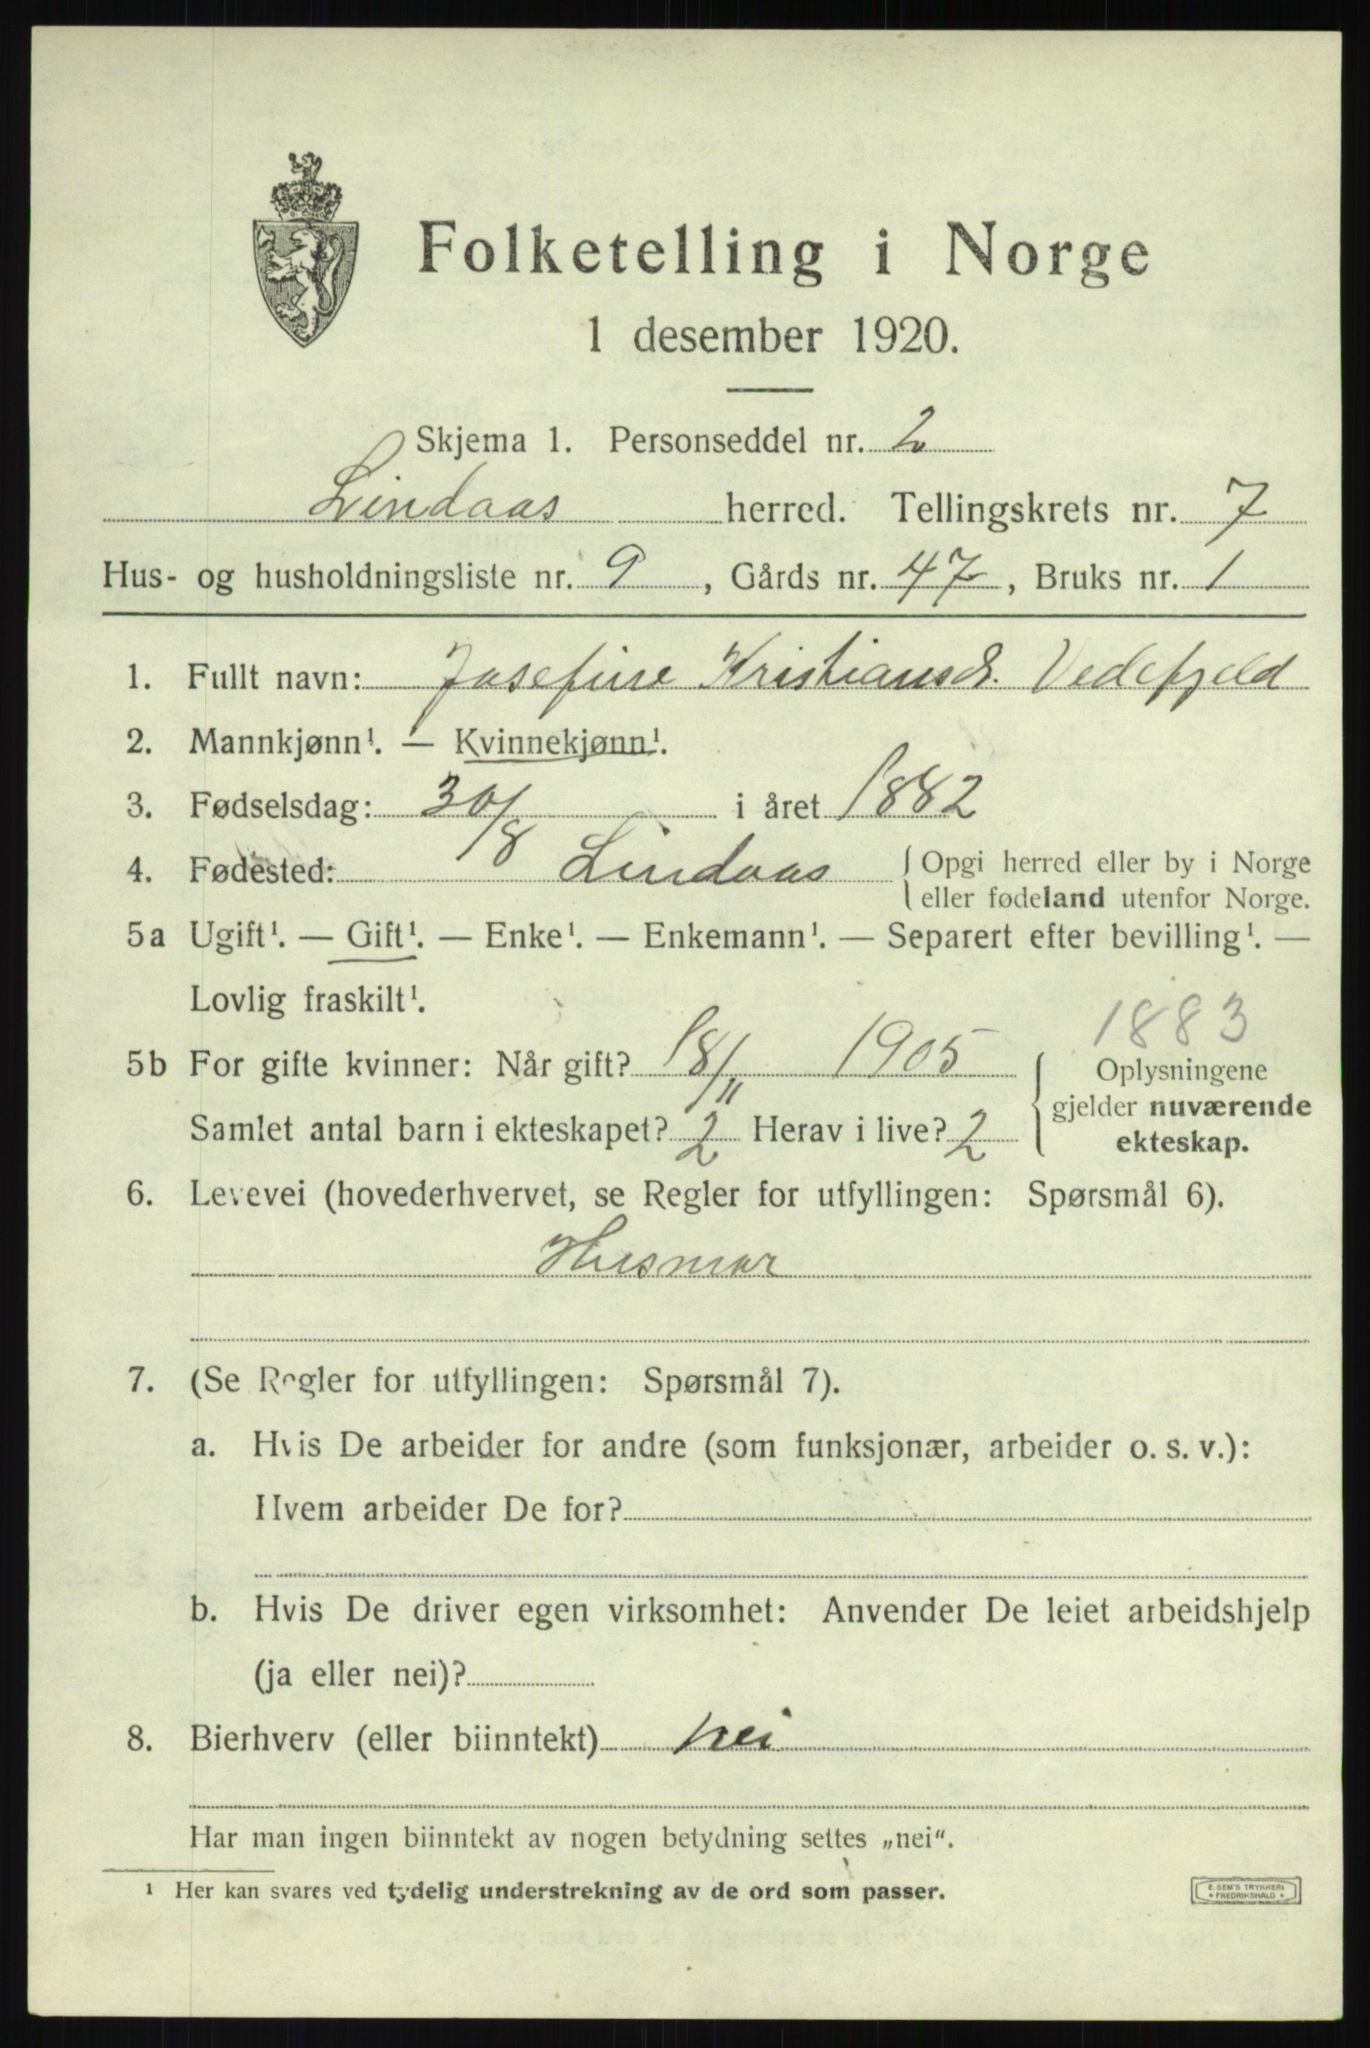 Folketelling i Norge
1 desember 1920.
Skjema 1. Personseddel nr. 2
Lindaas herred. Tellingskrets nr. 7
Hus- og husholdningsliste nr. 9, Gårds nr. 47, Bruks nr. 1
1. Fullt navn: Josefine Kristiansd. Vedefjeld
2. Mannkjønn¹. — Kvinnekjønn¹.
3. Fødselsdag: 30/8 i året 1882
4. Fødested: Lindaas { Opgi herred eller by i Norge
eller fødeland utenfor Norge.
5a Ugift¹. — Gift¹. — Enke¹. — Enkemann¹. — Separert efter bevilling¹. —
Lovlig fraskilt¹.
1883
5b For gifte kvinner: Når gift? 18/11 1905
Samlet antal barn i ekteskapet? 2 Herav i live? 2
{ Oplysningene
gjelder nuværende
ekteskap.
6. Levevei (hovederhvervet, se Regler for utfyllingen: Spørsmål 6).
Husmor
7. (Se Regler for utfyllingen: Spørsmål 7).
a. Hvis De arbeider for andre (som funksjonær, arbeider o. s. v.):
Hvem arbeider De for?
b. Hvis De driver egen virksomhet: Anvender De leiet arbeidshjelp
(ja eller nei)?
8. Bierhverv (eller biinntekt) nei
Har man ingen biinntekt av nogen betydning settes „nei“.
¹ Her kan svares ved tydelig understrekning av de ord som passer.
E. SEM'S TRYKKERI
• FREDRIKSHALD •